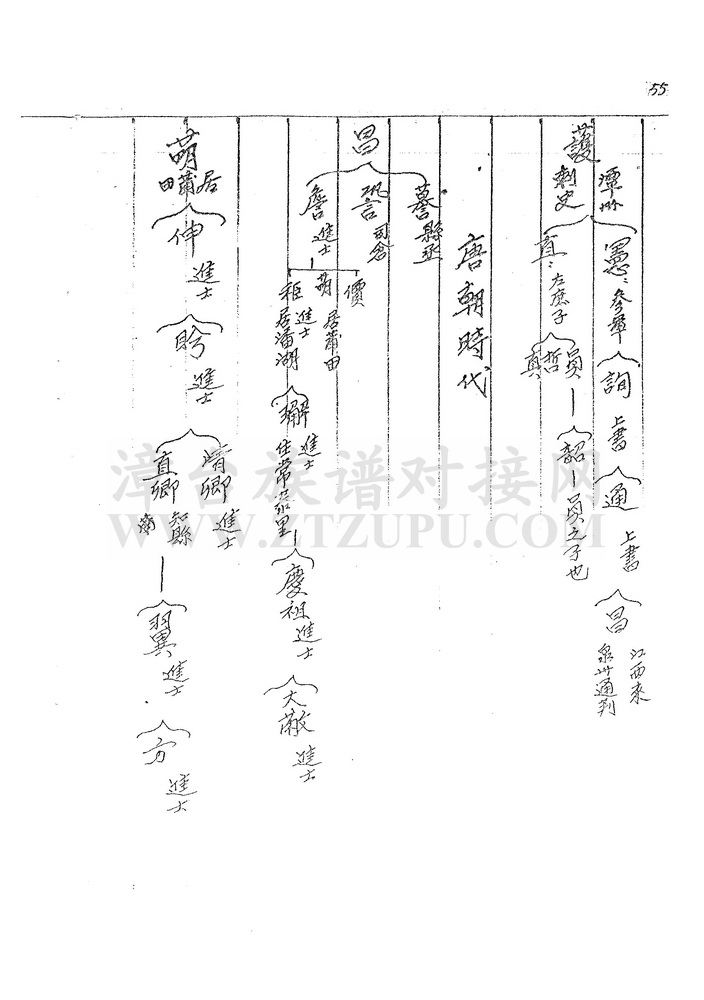 55
護
潭州
刺史
憲：參軍
詢
上書
通
上書
昌
江西來
泉州通判
直：左庶子
員
哲
真
韶
員之子也
唐朝時代
昌
謩
縣丞
司倉
詹
進士
價
萌
居莆田
進士
居潘湖
進士
慶祖
進士
大敵
進士
萌
居莆田
伸
進士
盻
進士
晴卿
進士
直卿
知縣
翼
進士
方
進士
漳台族谱对接网
WWW.ZTZUPU.COM